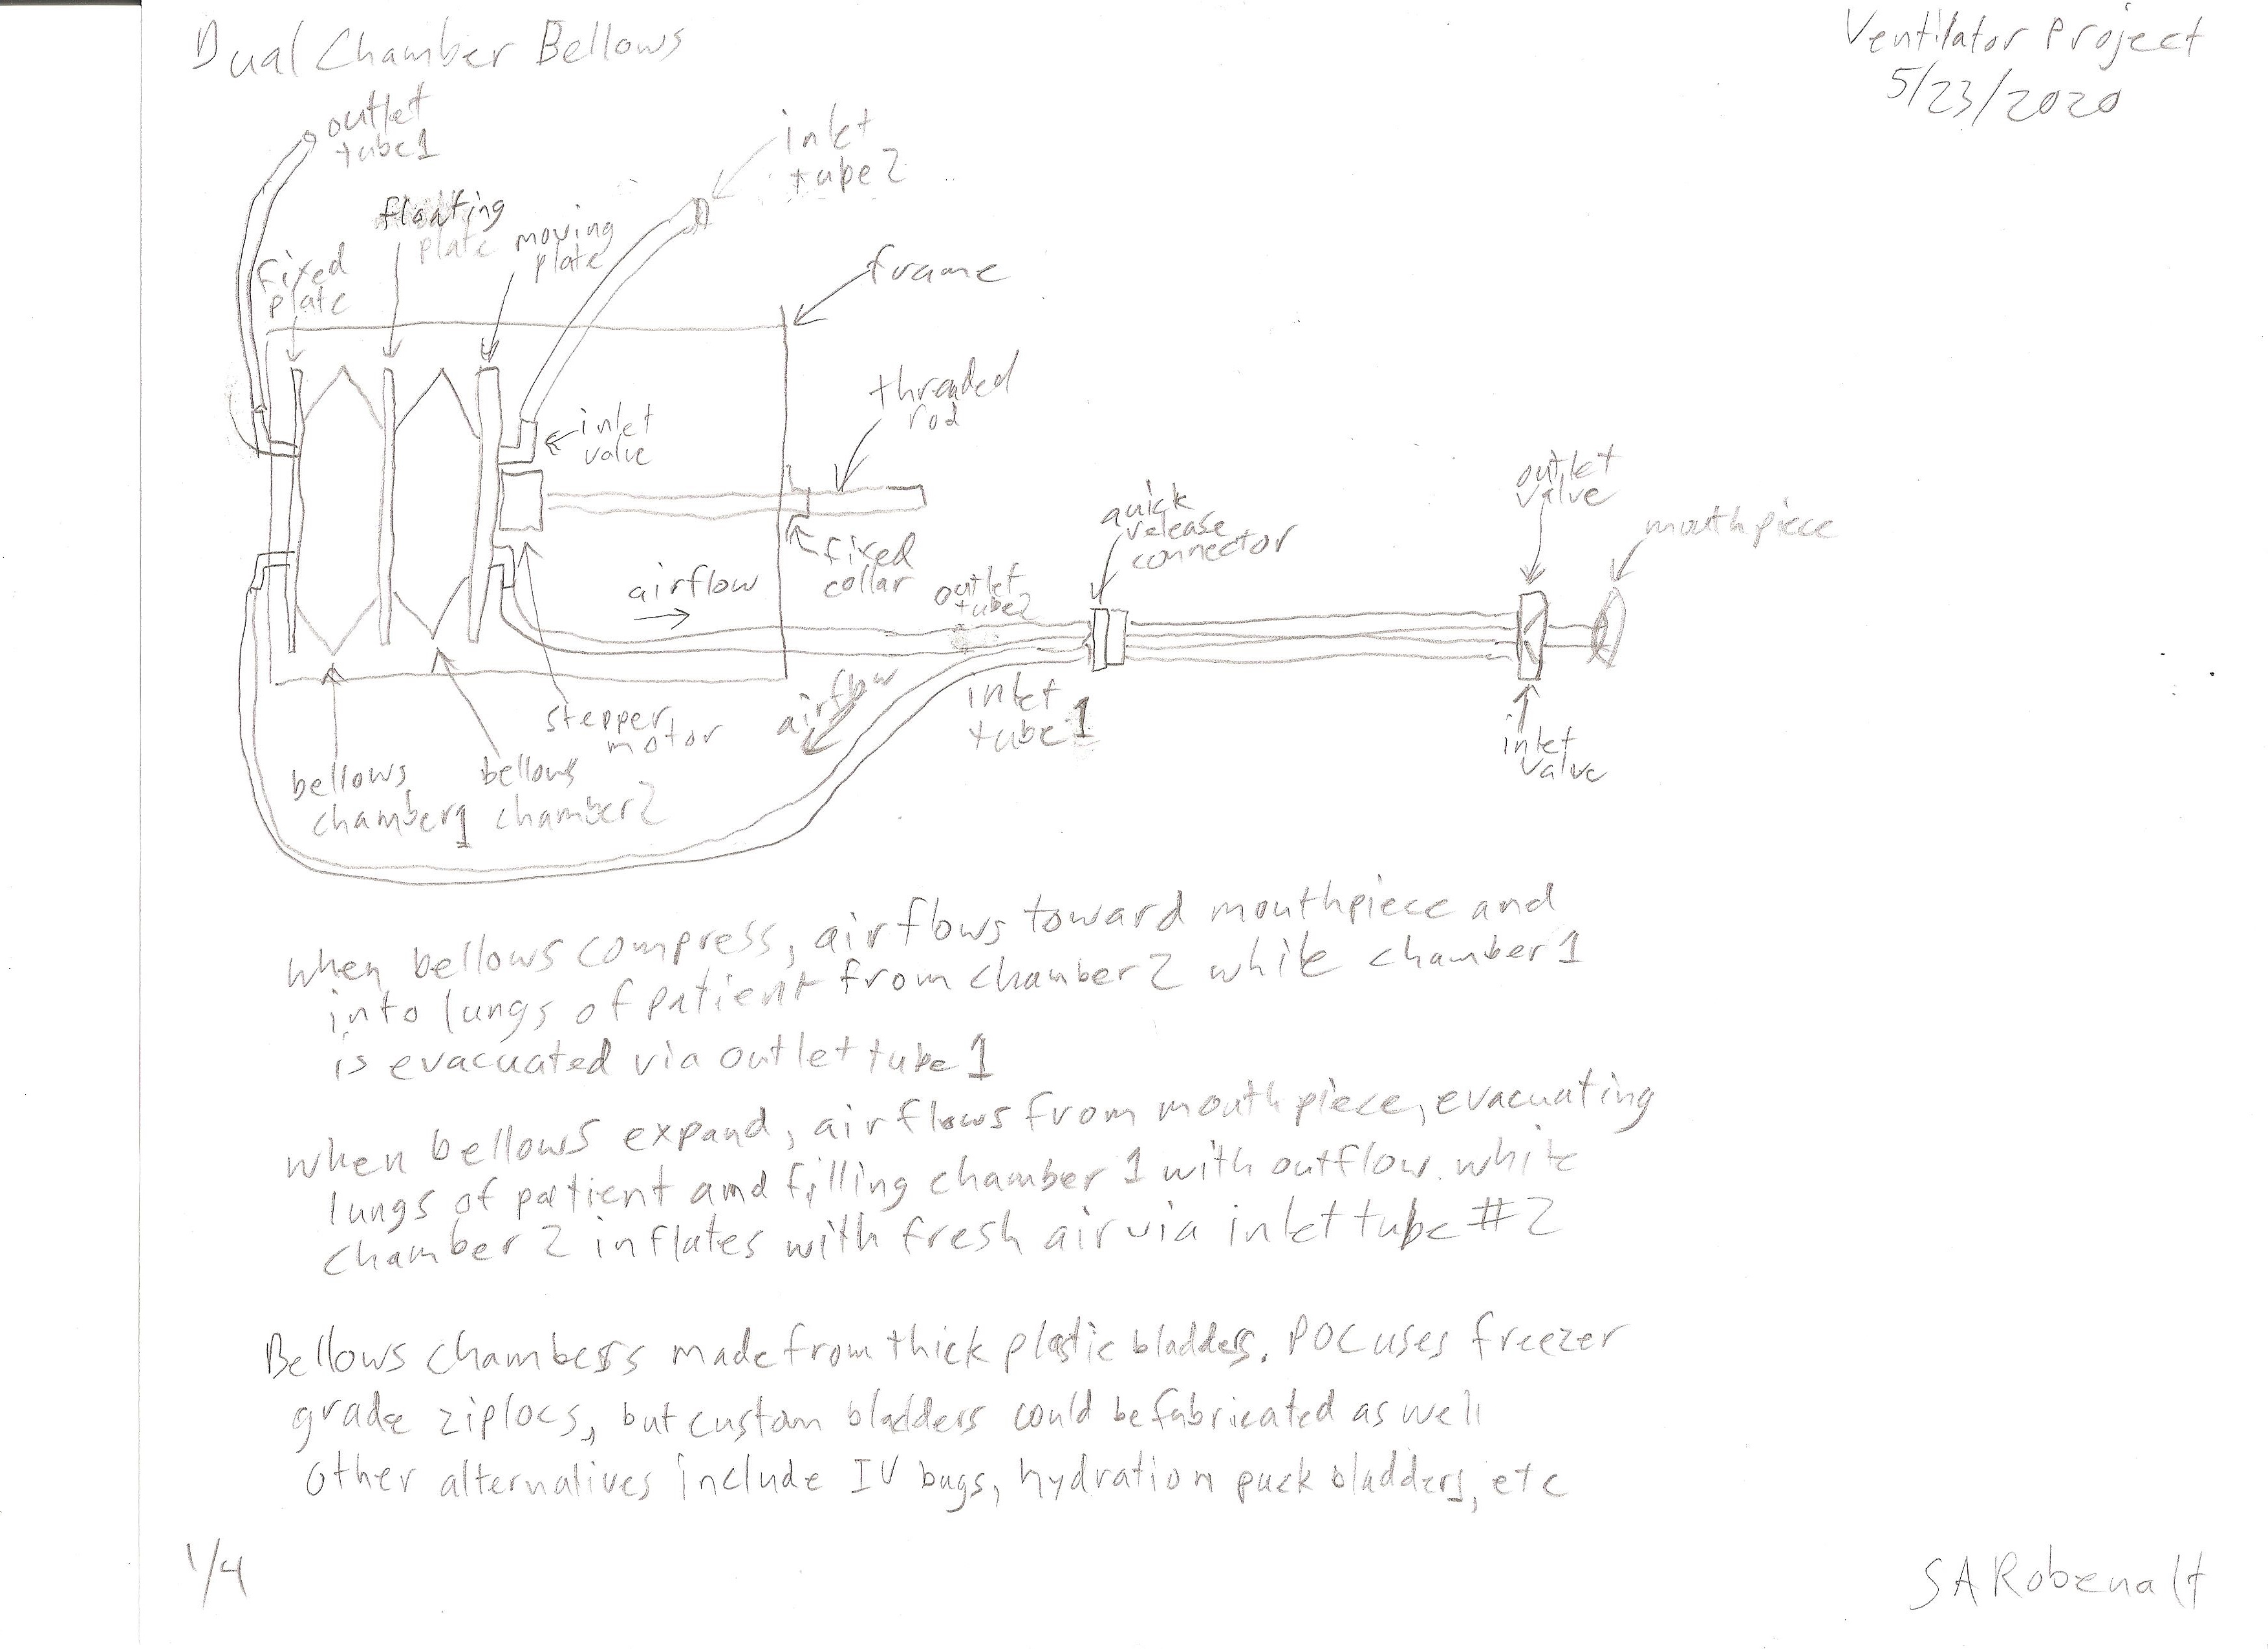 Dual Chamber Bellows
Ventilator Project
5/23/2020
outlet
tube1
inlet
tube 2
floating
plate
moving
plate
fixed
plate
frame
threaded
rod
inlet
valve
outlet
valve
quick
release
connector
mouthpiece
fixed
collar
airflow
outlet
tube2
airflow
inlet
tube 1
stepper
motor
inlet
valve
bellows
chamber1
bellows
chamber2
when bellows compress, air flows toward mouthpiece and
into lungs of patient from chamber 2 while chamber 1
is evacuated via outlet tube 1
when bellows expand, air flows from mouthpiece, evacuating
lungs of patient and filling chamber 1 with outflow. while
chamber 2 inflates with fresh air via inlet tube #2
Bellows chambers made from thick plastic bladders. POC uses freezer
grade ziplocs, but custom bladders could be fabricated as well
other alternatives include IV bags, hydration pack bladders, etc
1/4
SARobenalt